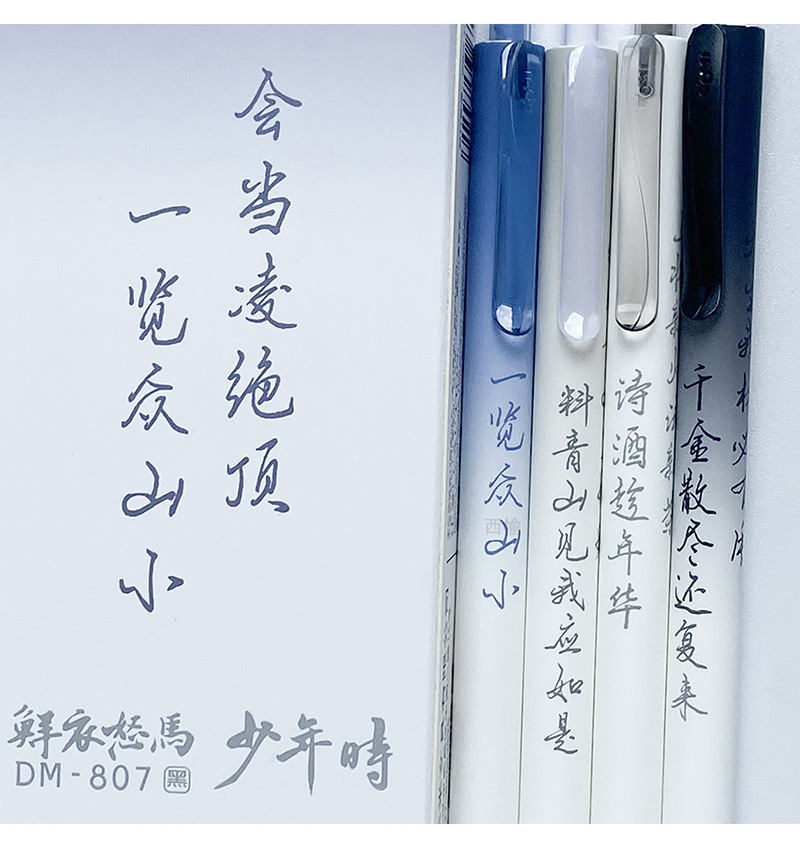 会当凌绝顶
一览众山小
鲜衣怒馬
少年時
DM-807 黑
一览众山小
料青山见我应如是
诗酒趁年华
千金散尽还复来
西榆